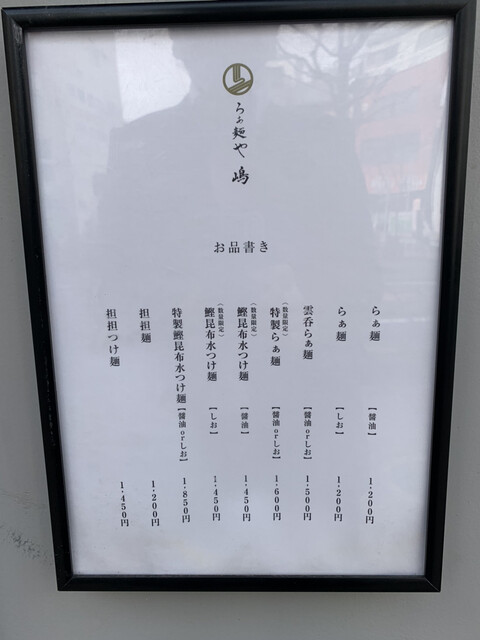 らぁ麺や 嶋
お品書き
らぁ麺 【醤油】 1,200円
らぁ麺 【しお】 1,200円
雲呑らぁ麺 【醤油orしお】 1,500円
(数量限定)
特製らぁ麺 【醤油orしお】 1,600円
(数量限定)
鰹昆布水つけ麺 【醤油】 1,450円
(数量限定)
鰹昆布水つけ麺 【しお】 1,450円
特製鰹昆布水つけ麺 【醤油orしお】 1,850円
担担麺 1,200円
担担つけ麺 1,450円